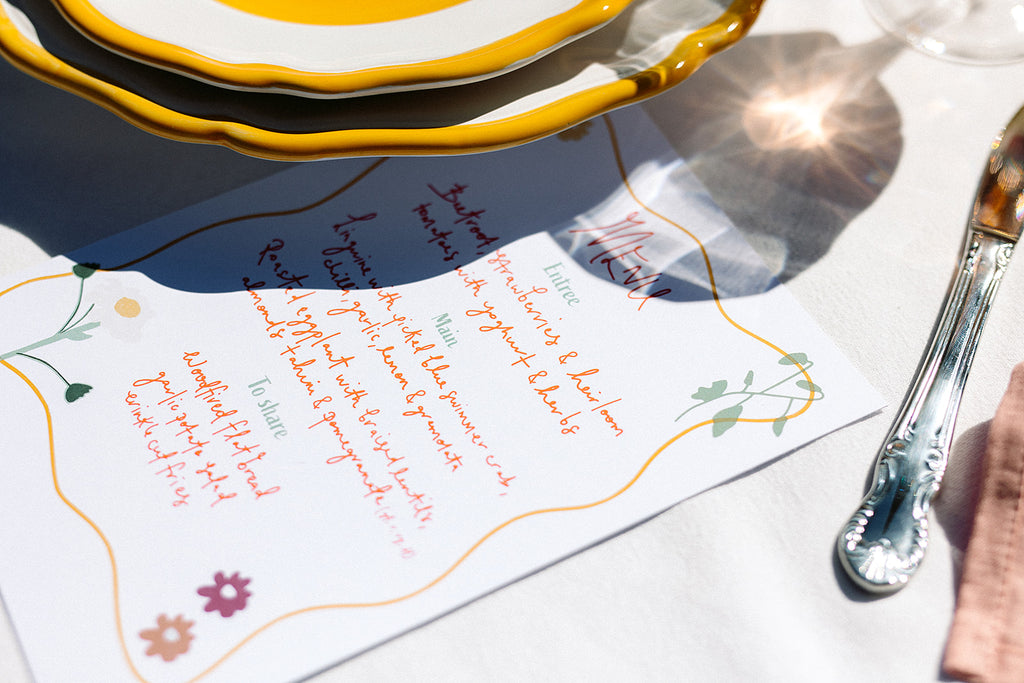 MENU
Entree
Beetroot, strawberries & heirloom
tomatoes with yoghurt & herbs
Main
Linguine with picked blue swimmer crab,
chilli, garlic, lemon & gremolata
Roasted eggplant with braised lentils,
almonds tahini & pomegranate
To share
Woodfired flat bread
garlic potato salad
crinkle cut fries